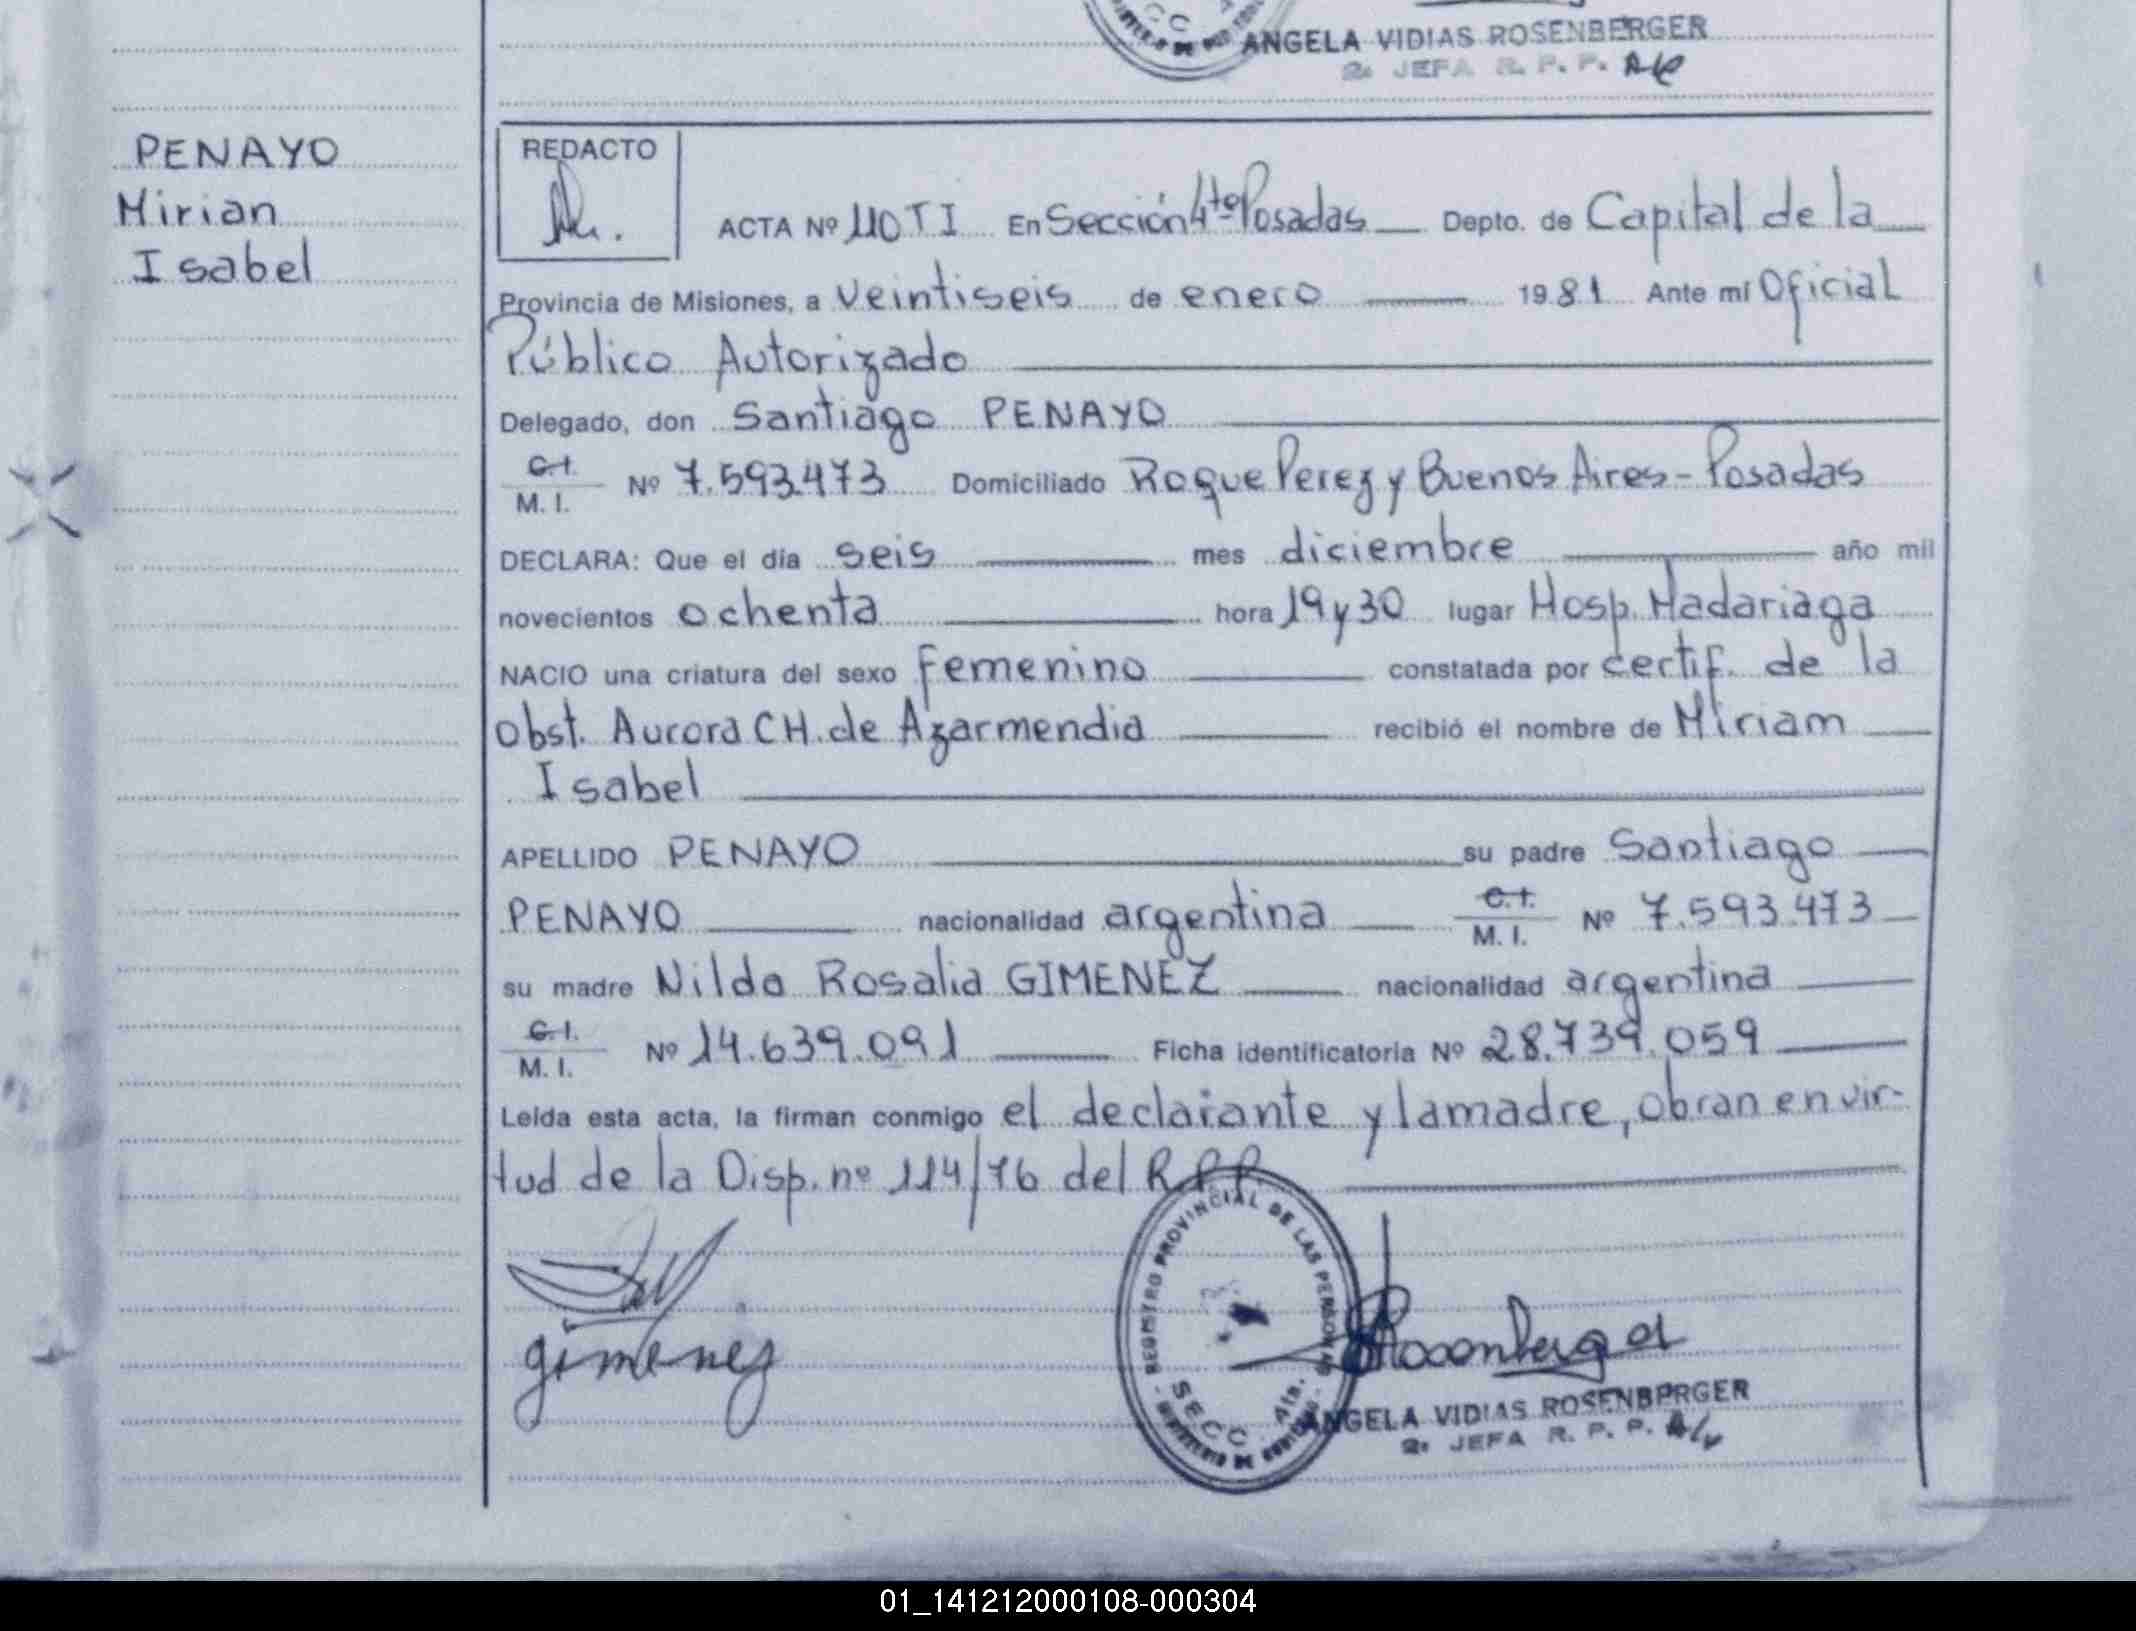 ANGELA VIDIAS ROSENBERGER
2a JEFA R. P. P.
PENAYO
Mirian
Isabel
REDACTO
ACTA Nº 110 T I En Sección 4ta Posadas Depto. de Capital de la
Provincia de Misiones, a veintiseis de enero 1981 Ante mí Oficial
Público Autorizado
Delegado, don Santiago PENAYO
C.I.
M. I. Nº 7.593.473 Domiciliado Roque Perez y Buenos Aires - Posadas
DECLARA: Que el día seis mes diciembre año mil
novecientos ochenta hora 19 y 30 lugar Hosp. Madariaga
NACIO una criatura del sexo femenino constatada por certif. de la
obst. Aurora CH. de Azarmendia recibió el nombre de Miriam
Isabel
APELLIDO PENAYO su padre Santiago
PENAYO nacionalidad argentina C.I.
M. I. Nº 7.593.473
su madre Nilda Rosalia GIMENEZ nacionalidad argentina
C.I.
M. I. Nº 14.639.091 Ficha identificatoria Nº 28.739.059
Leída esta acta, la firman conmigo el declarante y la madre, obran en vir-
tud de la Disp. nº 114/76 del R.P.P.
REGISTRO PROVINCIAL DE LAS PERSONAS
SECC. 4ta.
gimenez
Rosenberger
ANGELA VIDIAS ROSENBERGER
2a JEFA R. P. P.
01_141212000108-000304